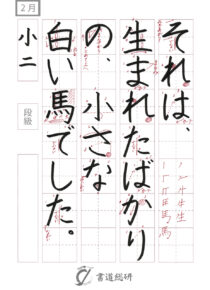 2月
それは、
生まれたばかり
の、小さな
白い馬でした。
小二
段級
書道総研